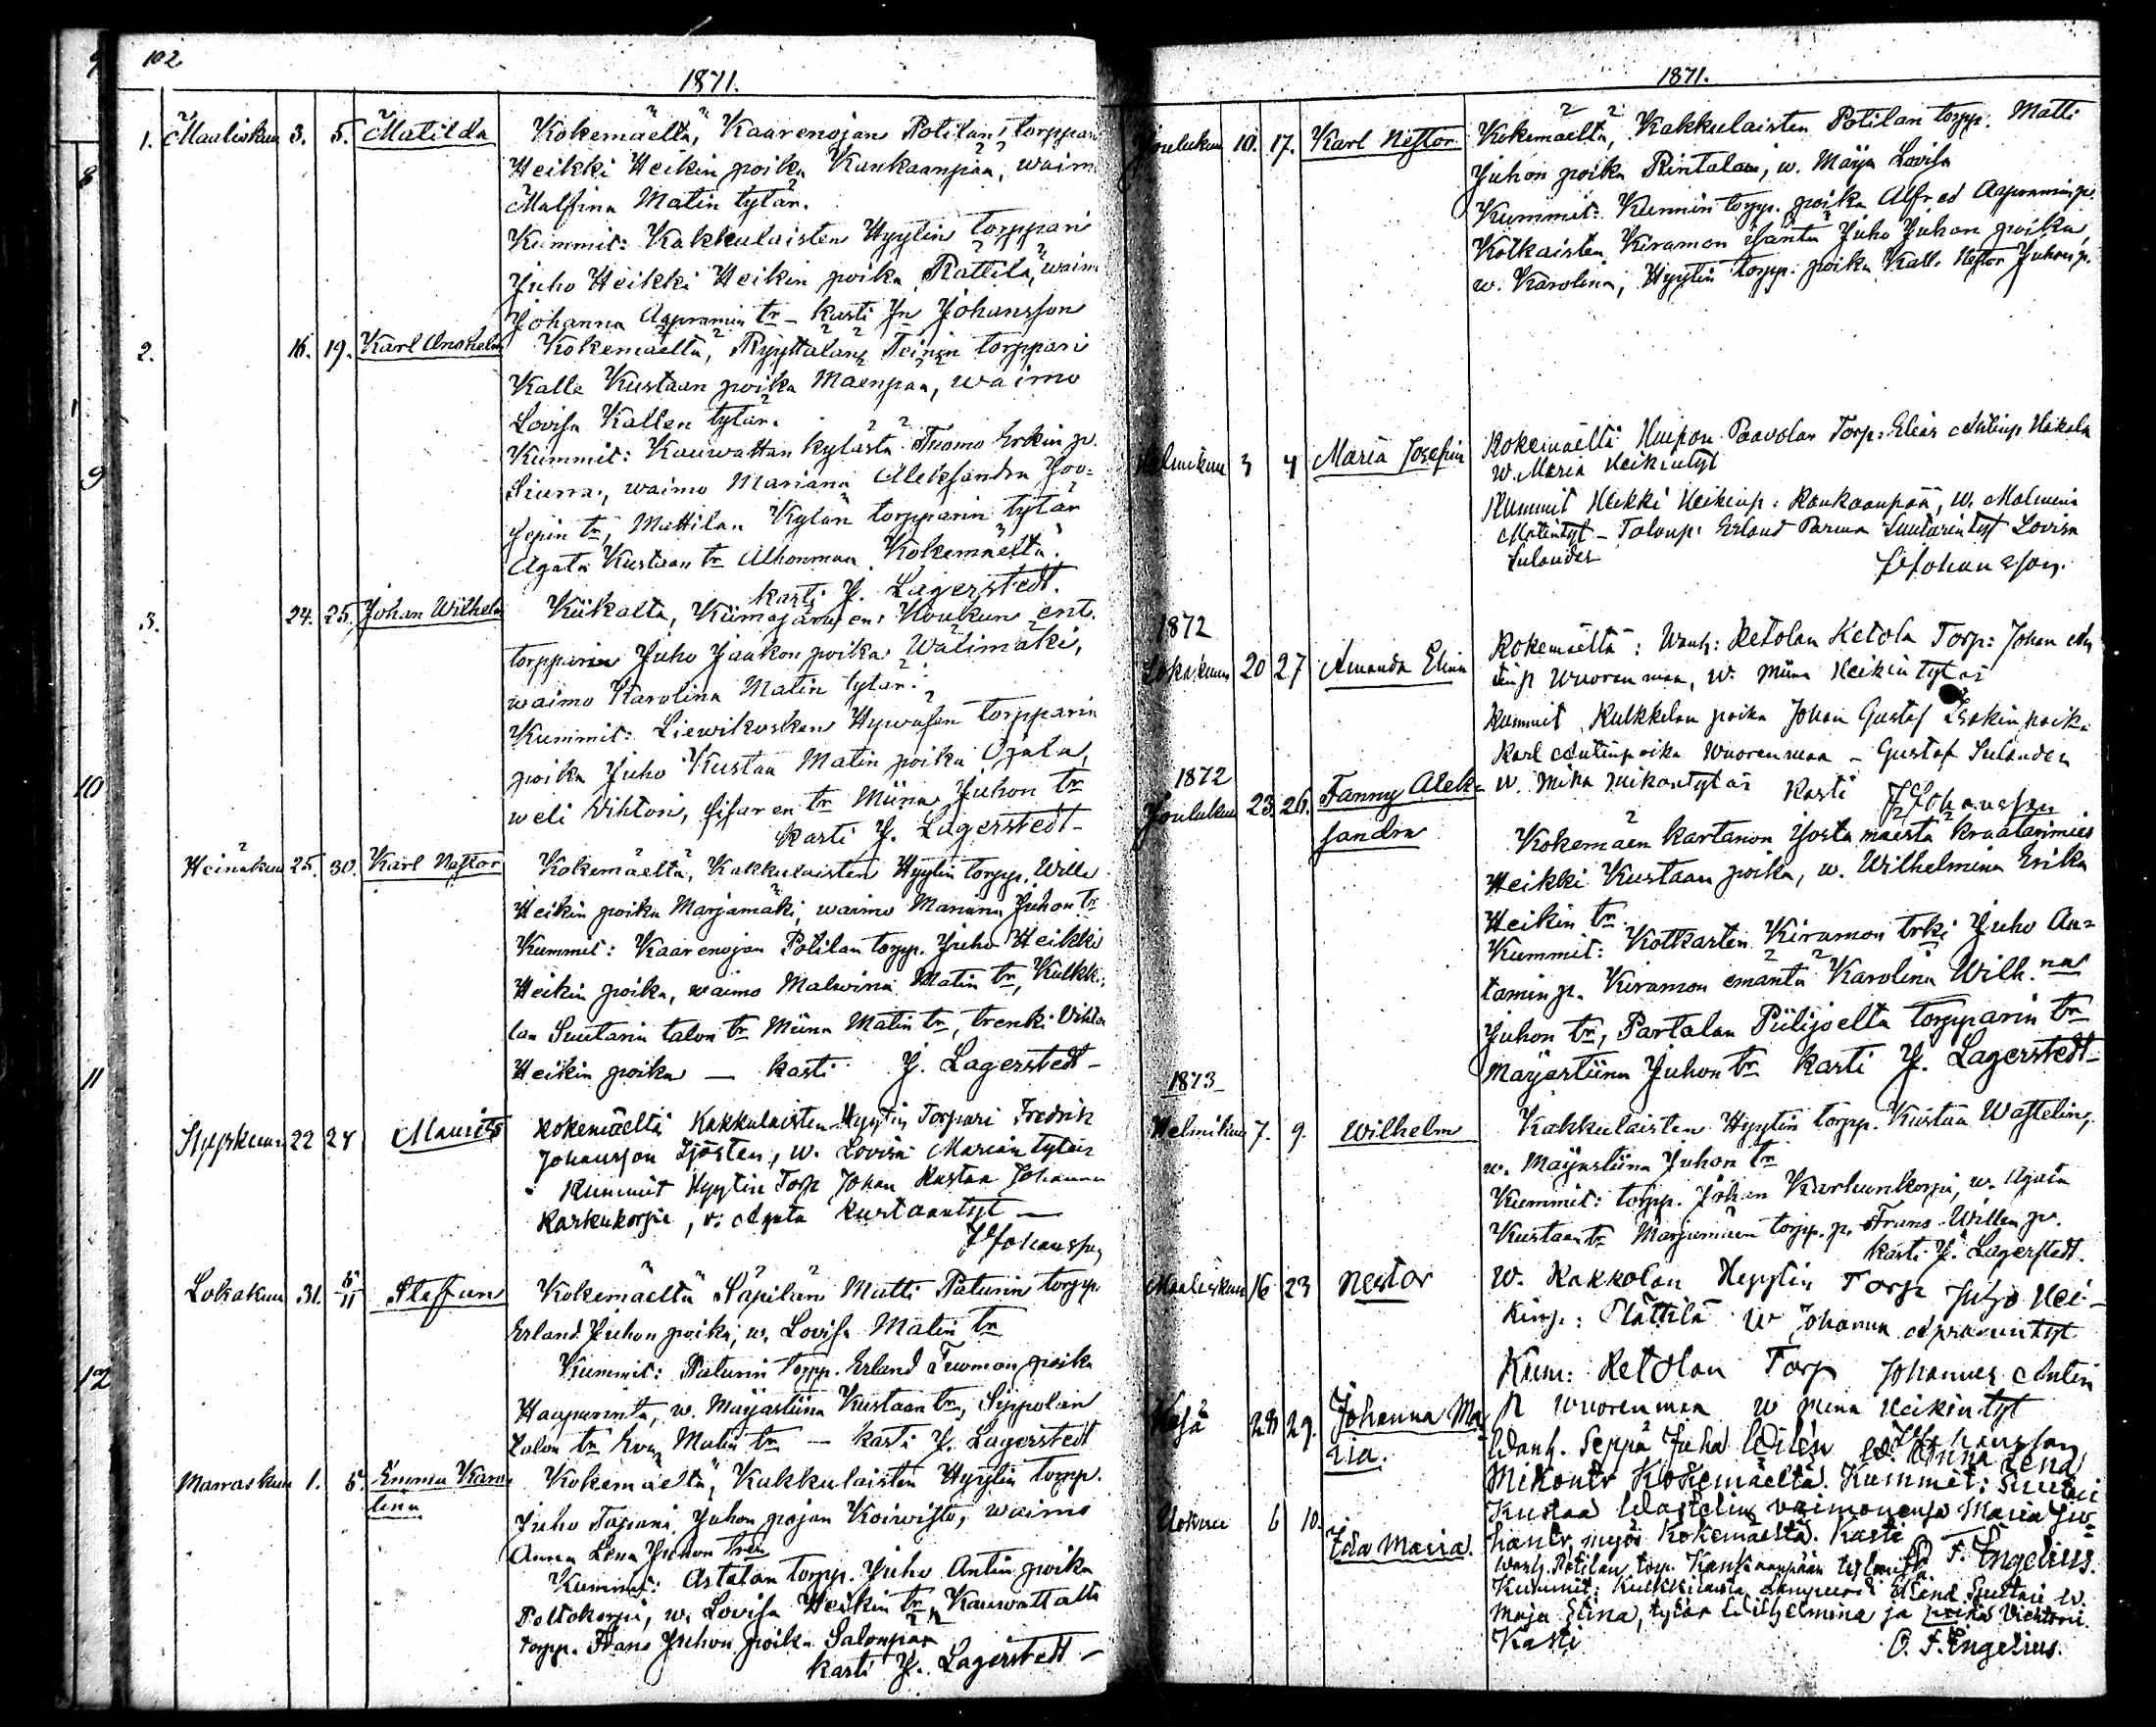 102
1871.
1. Maaliskuun 3. 5. Matilda Kokemäeltä, Kaarenojan Potilan torppari
Heikki Heikin poika Kankaanpää, waimo
Malfina Matin tytär.
Kummit: Kakkulaisten Hyytin torppari
Juho Heikki Heikin poika Rättilä, waimo
Johanna Aapramin tr – kasti Jn Johansson
2. 16. 19. Karl Anshelm Kokemäeltä, Ryyttälän Teinin torppari
Kalle Kustaan poika Mäenpää, waimo
Lovisa Kallen tytär.
Kummit: Kauwattan kylästä Tuomo Erkin p.
Siurra, waimo Mariana Aleksandra Joo-
sepin tr, Mattilan Kylän torpparin tytär
Agata Kustaan tr Alhonmaa Kokemäeltä.
kasti J. Lagerstedt.
3. 24. 25. Johan Wilhelm Kiikalta, Kiimajärwen Koukun ent.
torpparin Juho Jaakon poika Wälimäki,
waimo Karolina Matin tytär.
Kummit: Liewikosken Hywäsen torpparin
poika Juho Kustaa Matin poika Ojala,
weli Vihtori, sisaren tr Miina Juhon tr
kasti J. Lagerstedt –
Heinäkuun 25. 30. Karl Nestor Kokemäeltä, Kakkulaisten Hyytin torpp. Wille
Heikin poika Marjamäki, waimo Mariana Juhon tr
Kummit: Kaarenojan Potilan torpp. Juho Heikki
Heikin poika, waimo Malwina Matin tr, Kulkki-
lan Suutarin talon tr Miina Matin tr, trenki Vihtor
Heikin poika – kasti J. Lagerstedt –
Syyskuun 22 24 Mauritz Kokemäeltä Kakkulaisten Hyytin Torpari Fredrik
Johansson Sjösten, w. Lovisa Marian tytär
Kummit Hyytin Torp Johan Kustaa Johanna
Karhukorpi, w. Agata Kustaantyt –
J Johansson
Lokakuun 31. 5/11 Steffan Kokemäeltä Säpilän Matti Paturin torpp.
Erland Juhon poika, w. Lovisa Matin tr
Kummit: Paturin torpp. Erland Tuomon poika
Haapurinta, w. Maijastiina Kustaan tr, Sippolan
talon tr Eva Matin tr – kasti J. Lagerstedt
Marraskun 1. 5. Emma Karo-
lina Kokemäeltä, Kakkulaisten Hyytin torpp.
Juho Tapani Juhon pojan Koiwisto, waimo
Anna Lena Juhon tren
Kummit: Astalan torpp. Juho Antin poika
Poltokorpi, w. Lovisa Heikin tr, Kauwattalta
torpp. Frans Juhon poika Salonpää
kasti J. Lagerstedt –
8
9
10
11
12
1871.
Joulukun 10. 17. Karl Nestor Kokemäeltä, Kakkulaisten Potilan torpp. Matti
Juhon poika Rintalan, w. Maija Lovisa
Kummit: Kunnin torpp. poika Alfred Aapramin p.
Kotkaisten Kiramon isäntä Juho Juhan poika,
w. Karolina, Hyytin torpp. poika Kalle Nestor Juhon p.
Helmikun 3 4 Maria Josefin Kokemäeltä Huipon Paavolan Torp: Elias Akilinp. Häkola
w. Maria Heikintyt
Kummit Heikki Heikinp: Kankaanpää, w. Malwina
Matintyt – Talonp: Erland Parma Suutarintyt Lovisa
Sulander
J Johansson.
1872
Lokakuun 20 27 Amanda Elina Kokemäeltä: Wanh: Ketolan Ketola Torp: Johan An
tinp Wuorenmaa, w. Miina Heikin tytär
Kummit Kulkkilan poika Johan Gustaf Isakin poika
Karl Antinpoika Wuorenmaa – Gustaf Sulander
w. Miina Mikontytär Kasti J Johansson
1872
Joulukun 23. 26. Fanny Alek-
sandra Kokemäen kartanon Jostamäestä kraatarimies
Heikki Kustaan poika, w. Wilhelmina Erika
Heikin tr.
Kummit: Kotkarten Kiramon trki Juho An-
tamin p. Kiramon emäntä Karolina Wilh.na
Juhon tr, Partalan Piilijoelta torpparin tr
Maijastiina Juhon tr kasti J. Lagerstedt –
1873
Helmikun 7. 9. Wilhelm Kakkulaisten Hyytin torpp. Kustaa Wastelin,
w. Maijastiina Juhon tr
Kummit: torpp. Johan Karhunkorpi, w. Agata
Kustaan tr Marjamäen torpp. p. Frans Willen p.
kasti J. Lagerstedt.
Maaliskuu 16 23 Nestor W. Kakkolan Hyytin Torp Juho Hei-
kinp: Rättilä w Johanna Apramintyt
Kum: Ketolan Torp Johannes Antin
p Wuorenmaa w Miina Heikintyt
J Johansson
Kesä 28 29. Johanna Ma
ria. Wanh. Seppä Juha Widén w. Anna Lena
Mikontr Kokemäeltä. Kummit: Suutari
Kustaa Wastelin vaimonensa Maria Ju-
hantr, myös Kokemäeltä. Kasti
O. F. Engelius.
Elokuu 6 10. Ida Maria. Wanh. Potilan torp. Kankaanpään
Kummit: Kulkkilasta Erland Suutari w.
Maja Stina, tytär Wilhelmina ja poika Viktorii.
Kasti
O. F. Engelius.